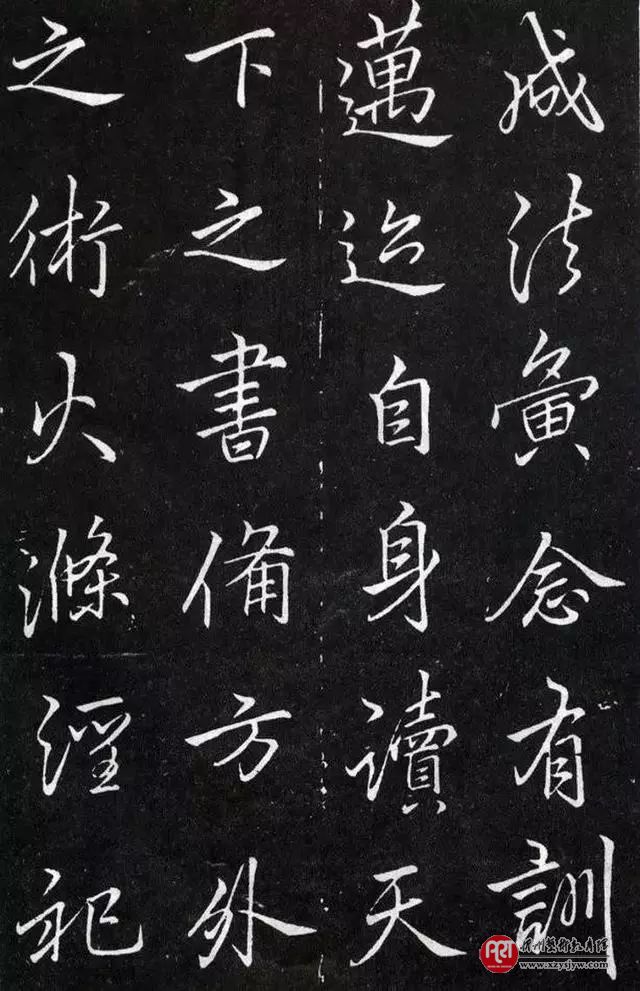 成法夤念有訓
邁迹自身讀天
下之書備方外
之術火滌淫祀
ART
www.xzysjyw.com